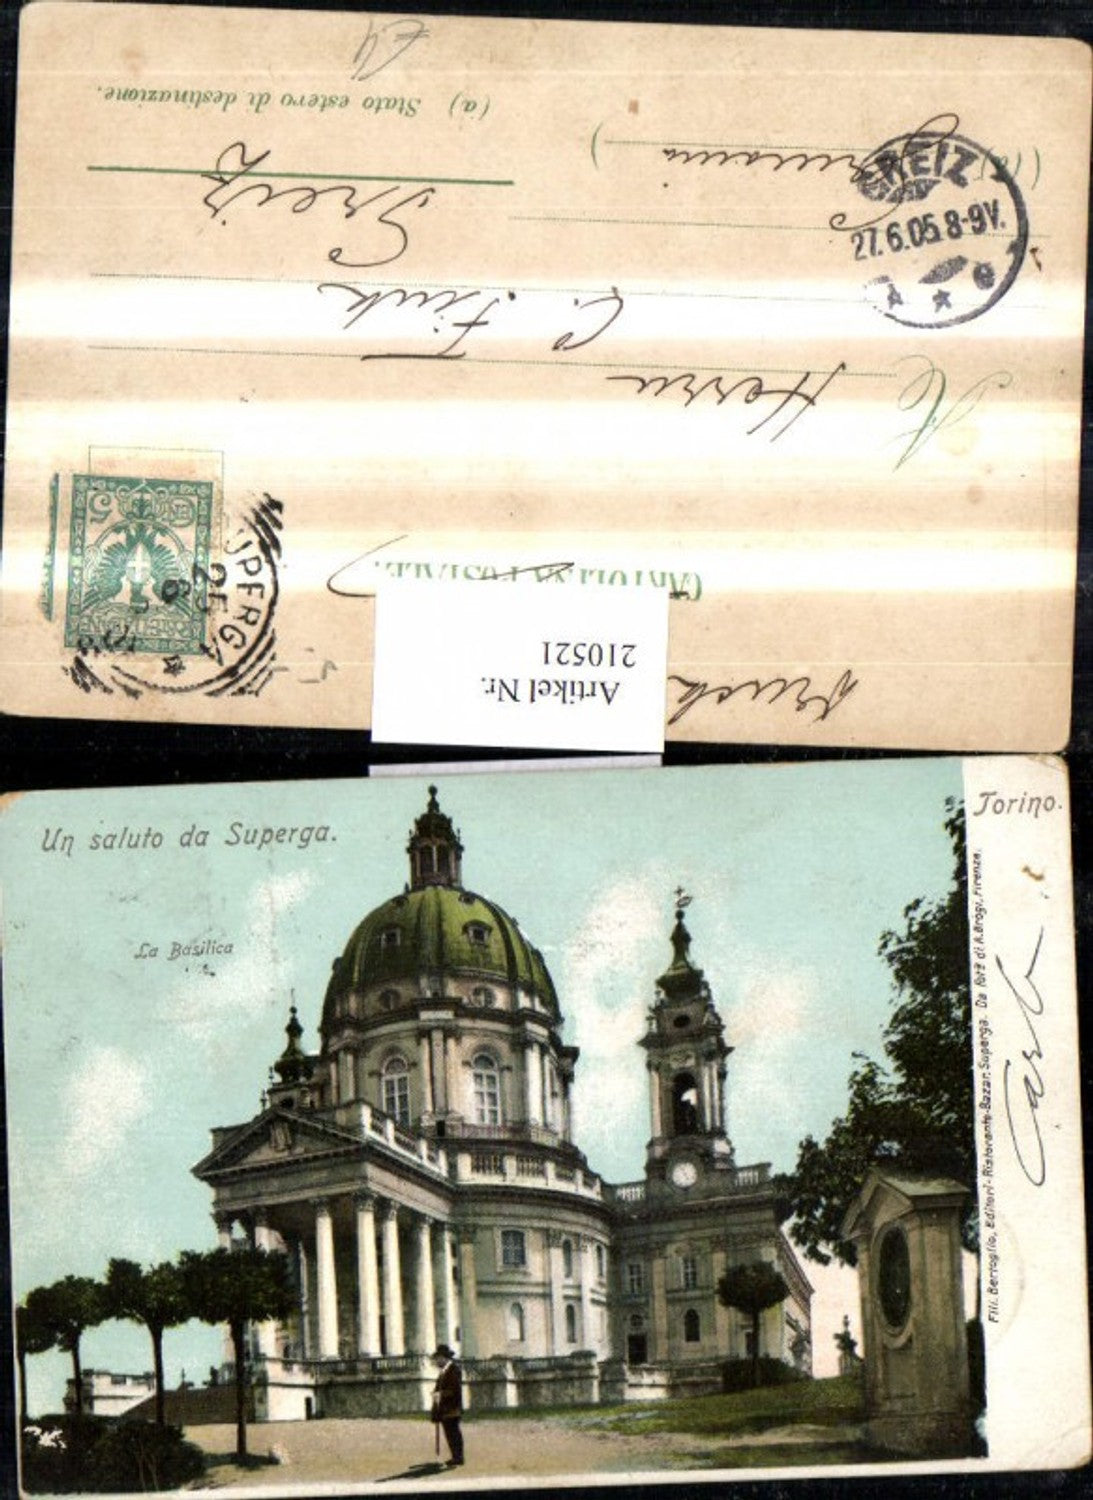 Drucks
Artikel Nr.
210521
CARTOLINA POSTALE.
SUPERGA
25
6
05
5
A
Herrn
C. Fink
Greiz
Germania
(a) Stato estero di destinazione.
GREIZ
27.6.05.8-9V.
Un saluto da Superga.
Torino.
La Basilica
Flli. Bertoglio, Editori-Ristorante-Bazar. Superga. Da fotª di A. Brogi, Firenze.